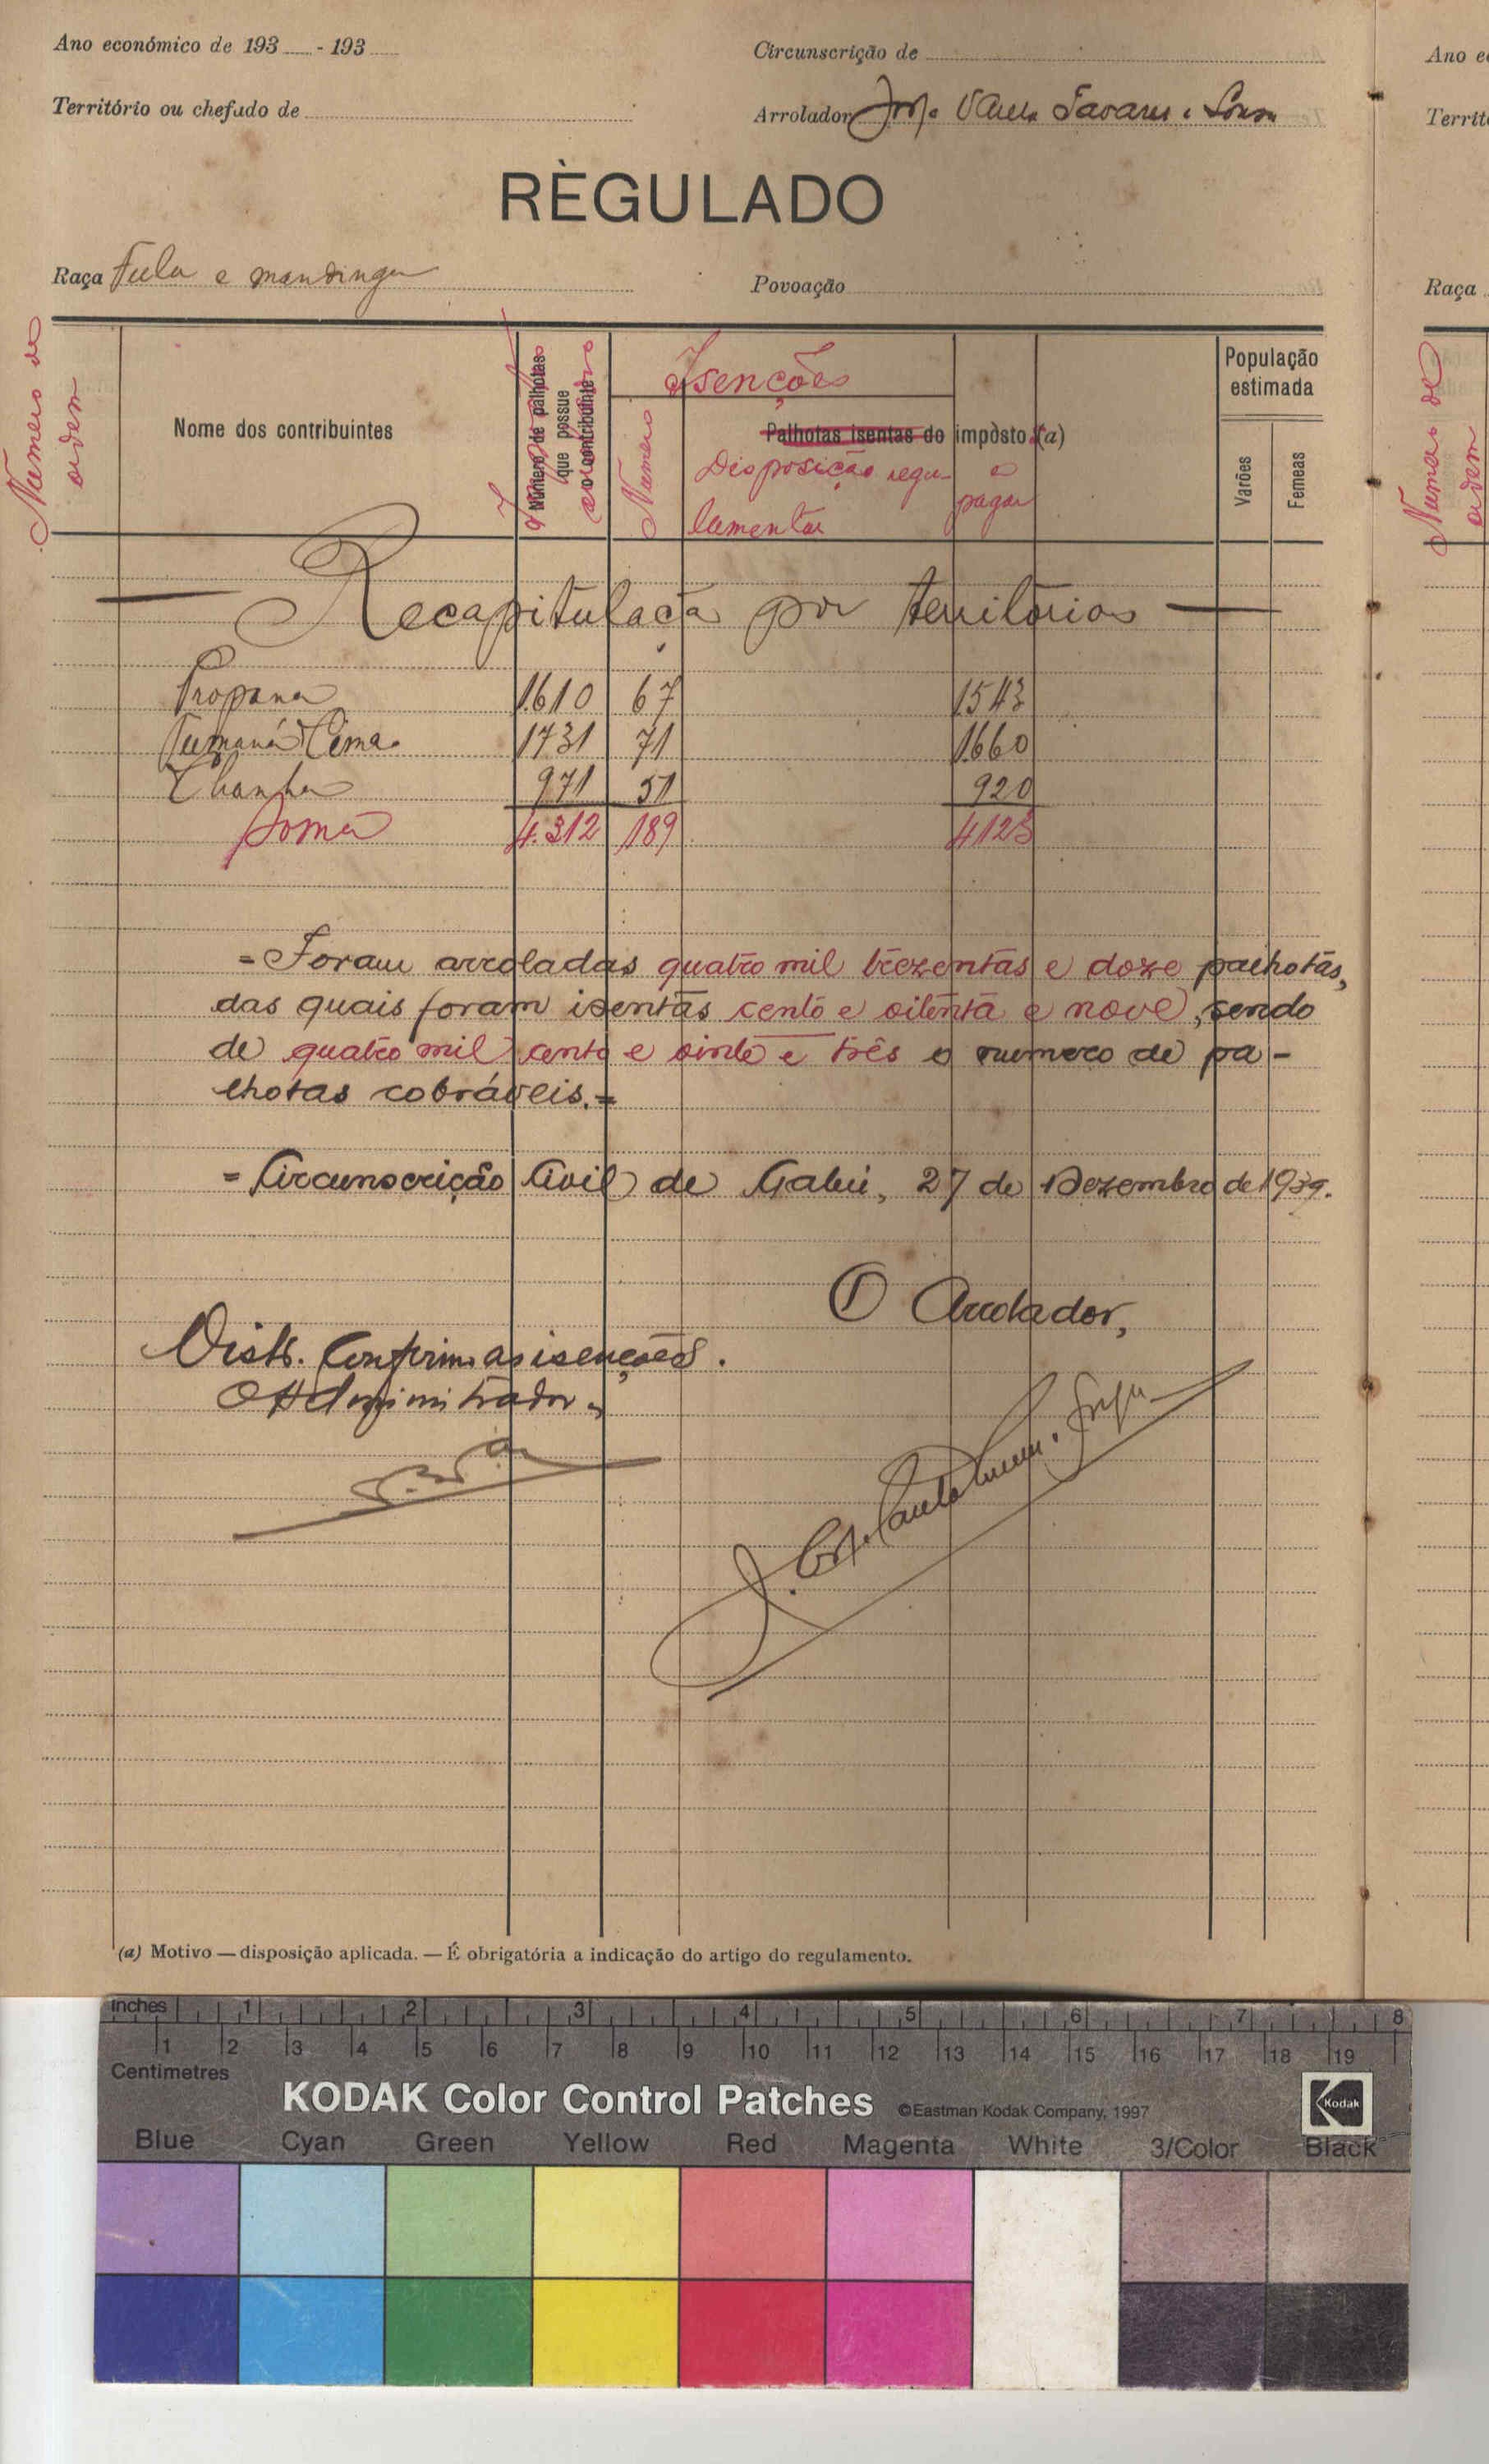 Ano económico de 193 - 193
Circunscrição de
Território ou chefado de
Arrolador Tavares e Sousa
RÈGULADO
Raça Fula e mandinga
Povoação
Numero de ordem
Nome dos contribuintes
Número de palhotas que possue o contribuinte
Isenções
Numero
Palhotas isentas do impòsto (a)
Disposição regu-
lamentar
a pagar
População estimada
Varões
Femeas
Recapitulação por territórios
Propana 1.610 67 1543
Tumaná Cima 1731 71 1660
Chanha 971 51 920
Soma 4.312 189 4123
= Foram arroladas quatro mil trezentas e doze palhotas,
das quais foram isentas cento e oitenta e nove, sendo
de quatro mil cento e vinte e três o numero de pa-
lhotas cobráveis.=
= Circunscrição Civil de Gabú, 27 de Dezembro de 1939.
O Arrolador,
Visto. Confirmo as isenções.
O Administrador
(a) Motivo — disposição aplicada. — É obrigatória a indicação do artigo do regulamento.
Ano e
Territ
Raça
Numero de ordem
inches 1 2 3 4 5 6 7 8
1 2 3 4 5 6 7 8 9 10 11 12 13 14 15 16 17 18 19
Centimetres
KODAK Color Control Patches ©Eastman Kodak Company, 1997
Kodak
Blue Cyan Green Yellow Red Magenta White 3/Color Black